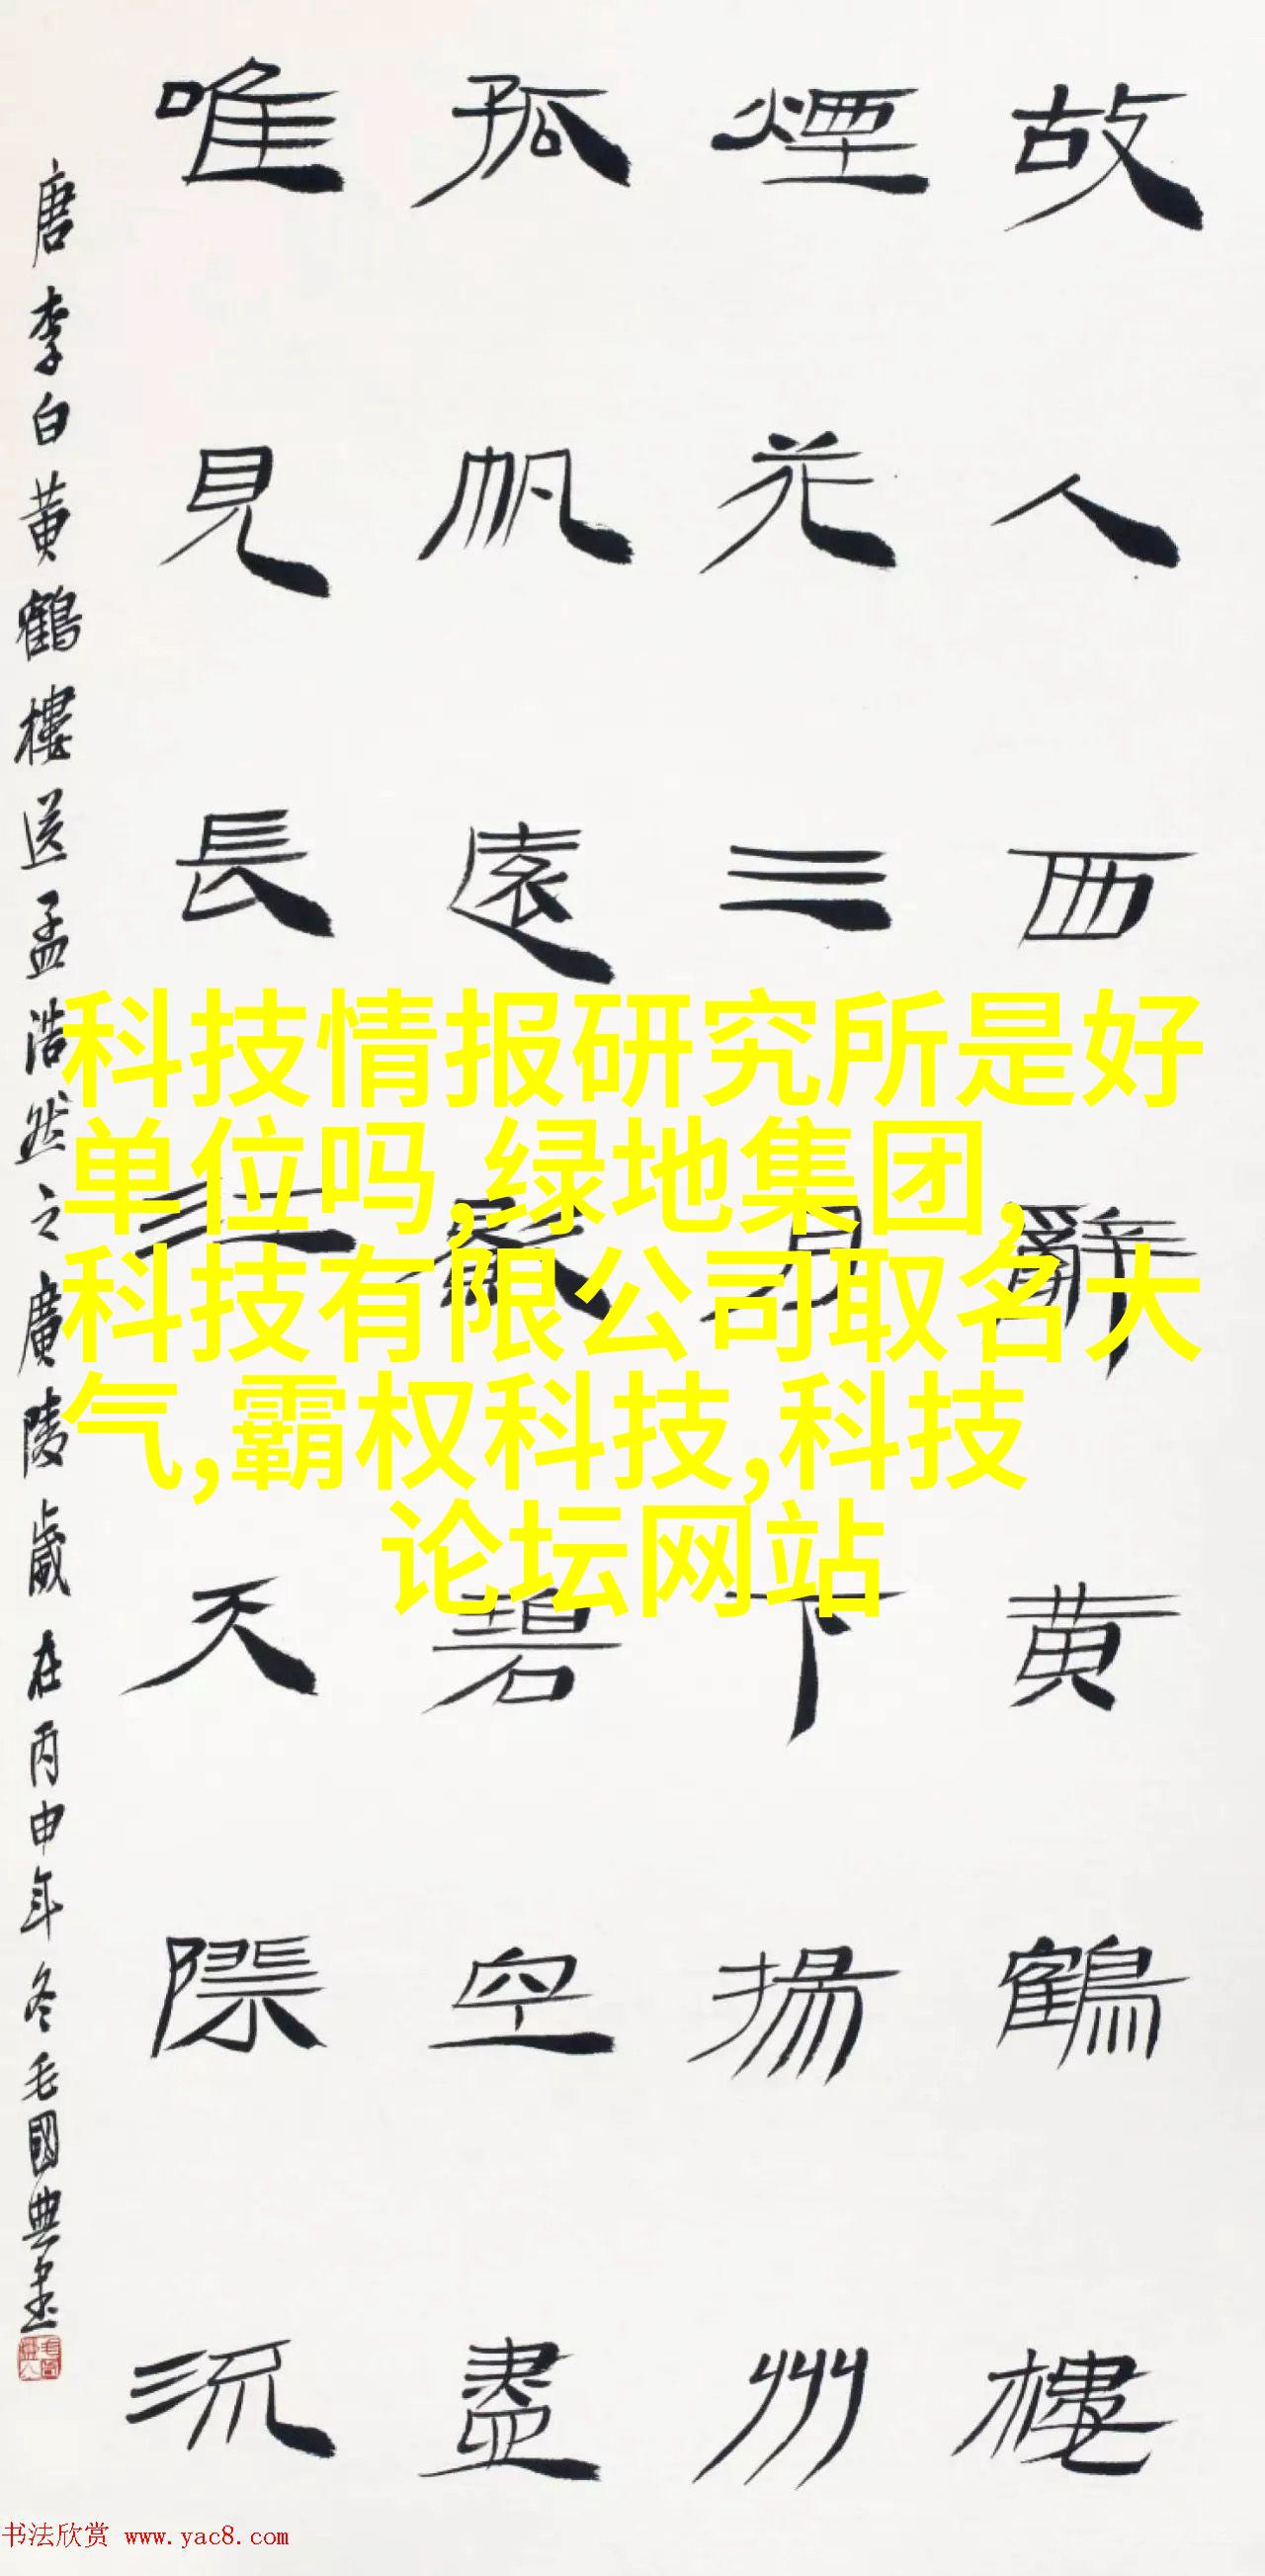 故人西辭黄鶴樓
煙花三月下揚州
孤帆遠影碧空盡
唯見長江天際流
唐李白黄鶴樓送孟浩然之廣陵歲在丙申年冬毛國典書
科技情报研究所是好
单位吗,绿地集团,
科技有限公司取名大
气,霸权科技,科技
论坛网站
书法欣赏 www.yac8.com